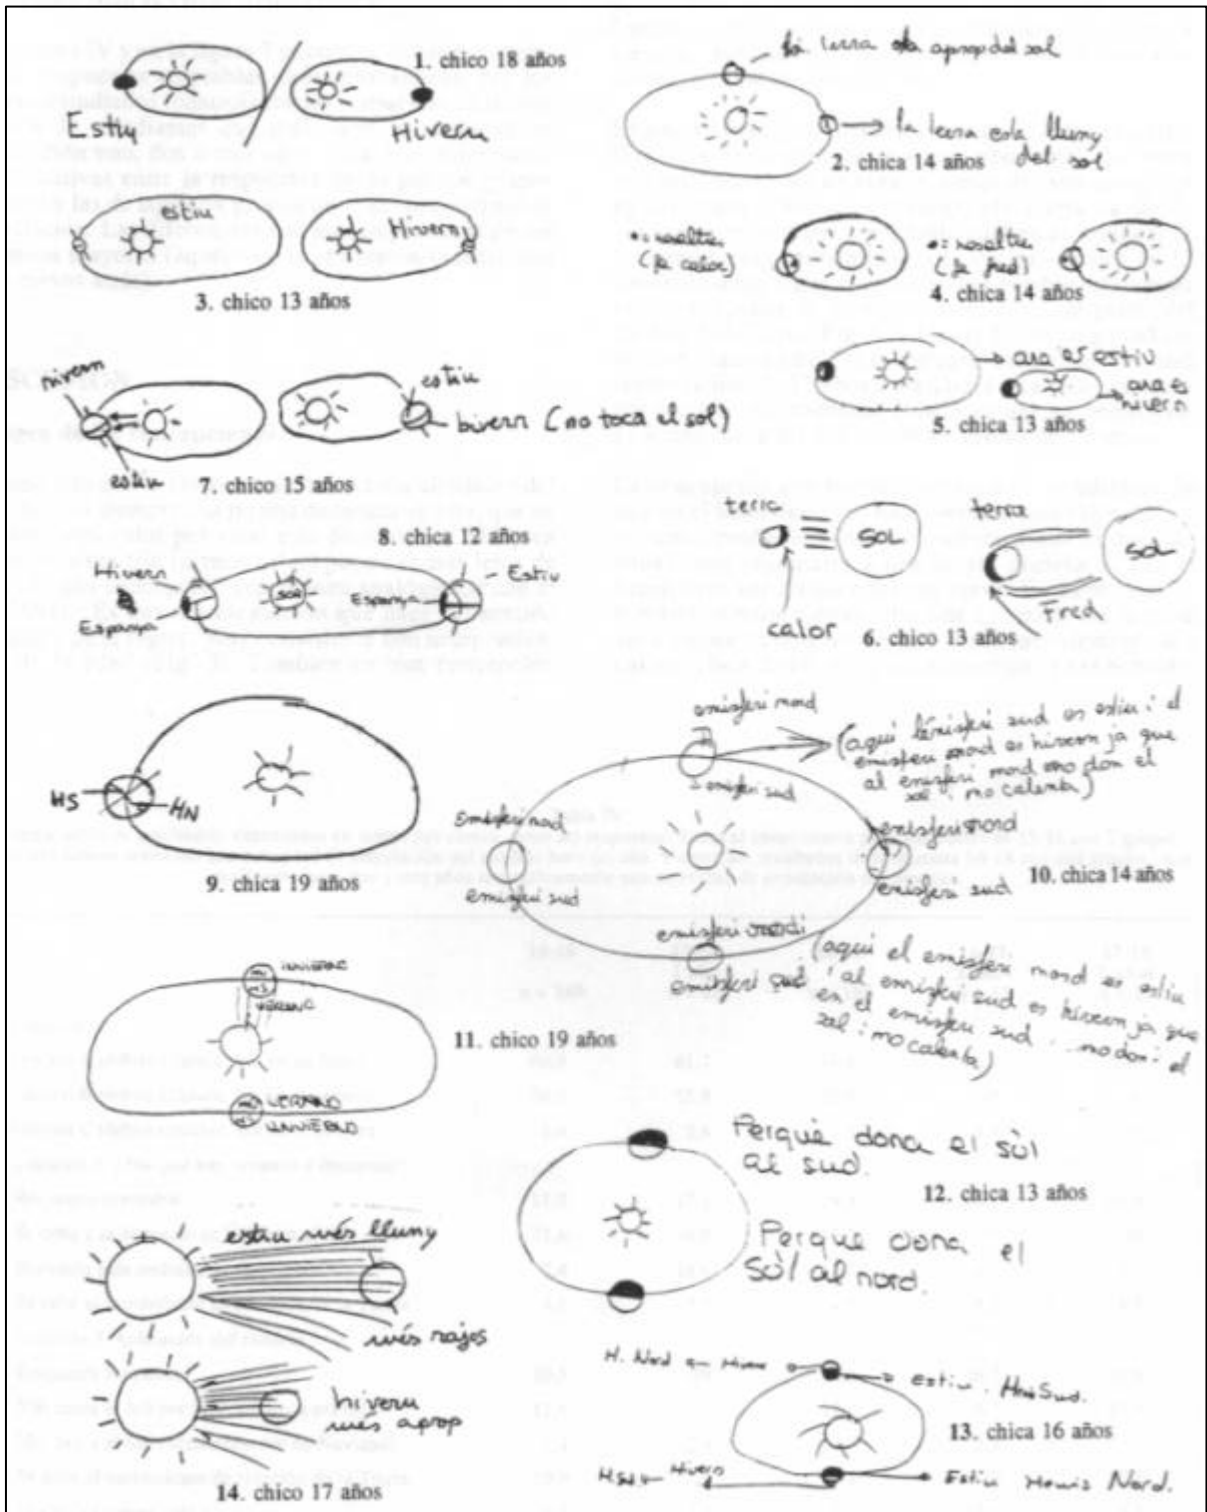 1. chico 18 años
Estiu
Hivern
la terra esta aprop del sol
la terra esta lluny
del sol
2. chica 14 años
estiu
Hivern
3. chico 13 años
•= nosaltres
(fa calor)
•= nosaltres
(fa fred)
4. chica 14 años
ara es estiu
ara es
hivern
5. chico 13 años
hivern
estiu
estiu
hivern (no toca el sol)
7. chico 15 años
terra
SOL
calor
terra
SOL
Fred
6. chico 13 años
8. chico 12 años
Hivern
Espanya
SOL
Espanya
Estiu
HS
HN
9. chica 19 años
emisferi nord
emisferi sud
(aquí l'emisferi sud es estiu i el
emisferi nord es hivern ja que
al emisferi nord no don el
sol i no calenta)
emisferi nord
emisferi sud
emisferi nord
emisferi sud
10. chica 14 años
emisferi nord
emisferi sud
(aquí el emisferi nord es estiu
i al emisferi sud es hivern ja que
en el emisferi sud no don el
sol i no calenta)
INVIERNO
VERANO
VERANO
INVIERNO
11. chico 19 años
Perquè dona el sòl
al sud.
12. chica 13 años
Perque dona el
Sòl al nord.
estiu més lluny
més rajos
hivern
més aprop
14. chico 17 años
H. Nord
Hivern
estiu
Sud.
13. chica 16 años
Hivern
Estiu
Nord.